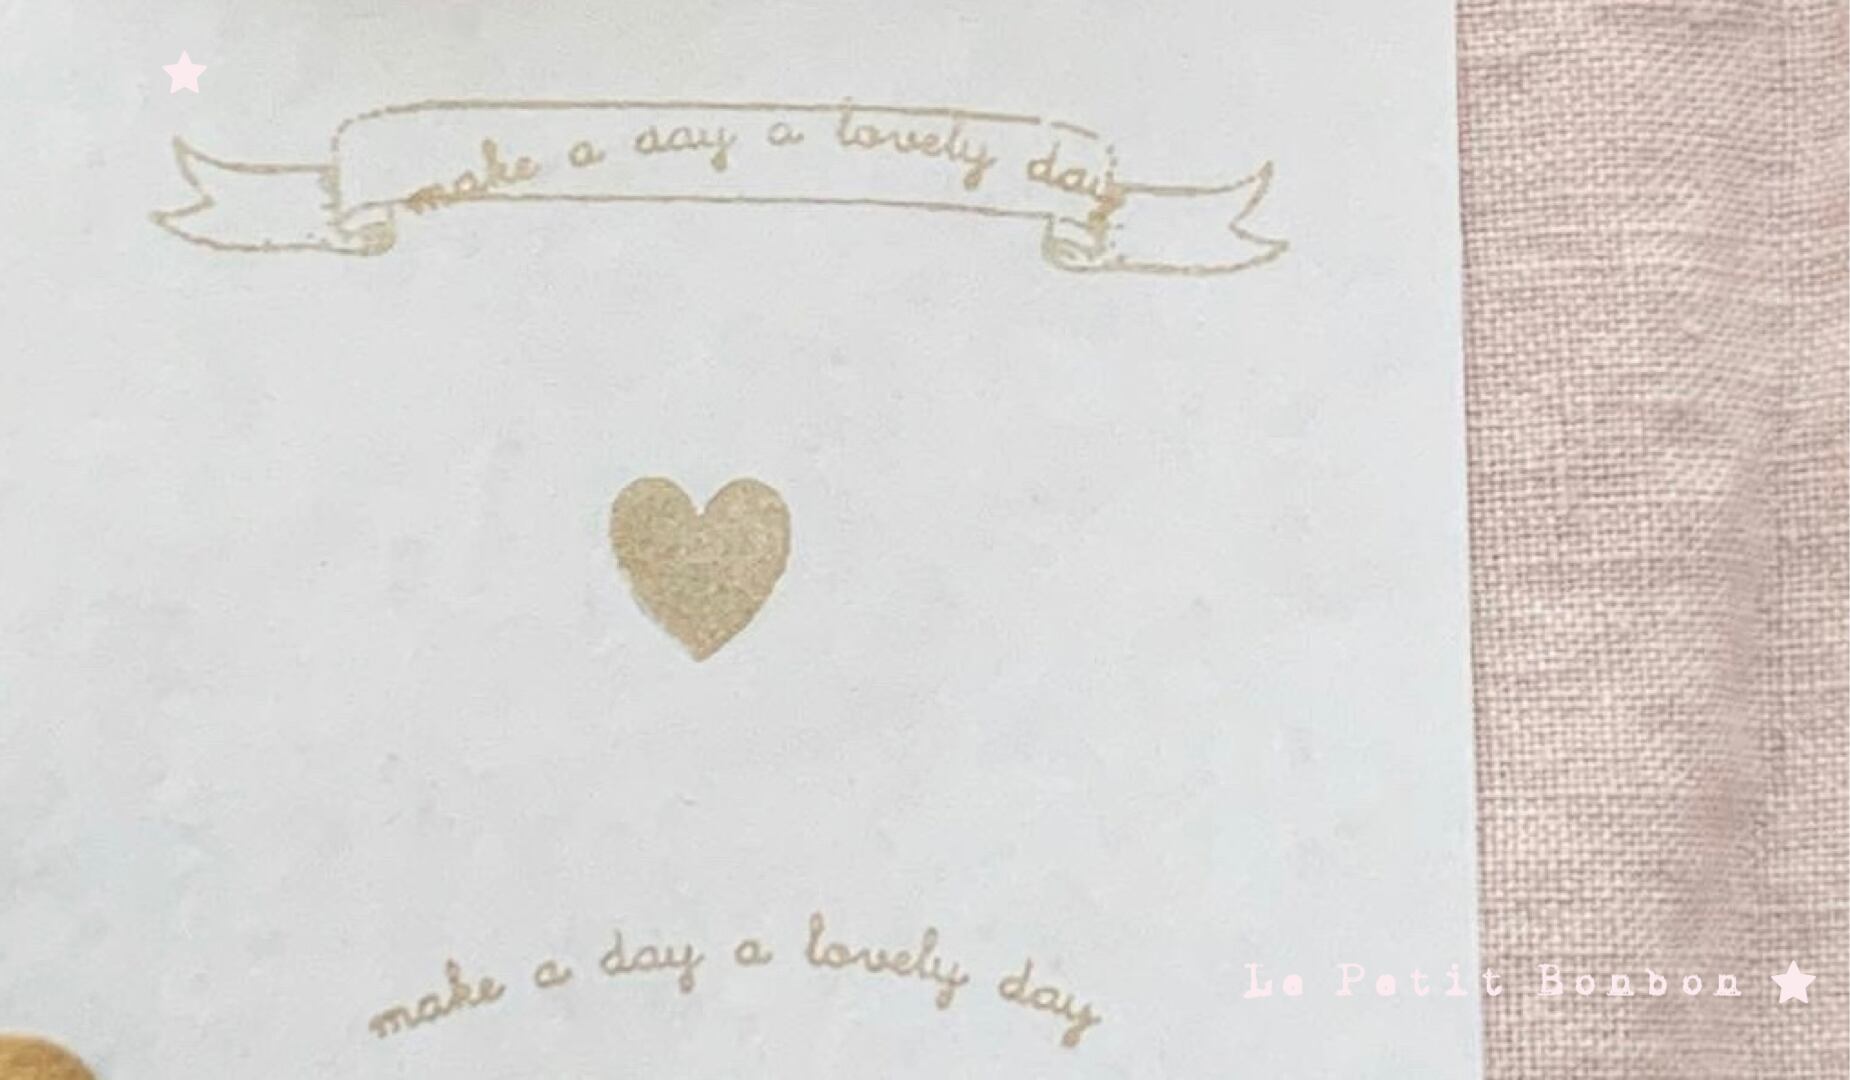 make a day a lovely day
make a day a lovely day
Le Petit Bonbon